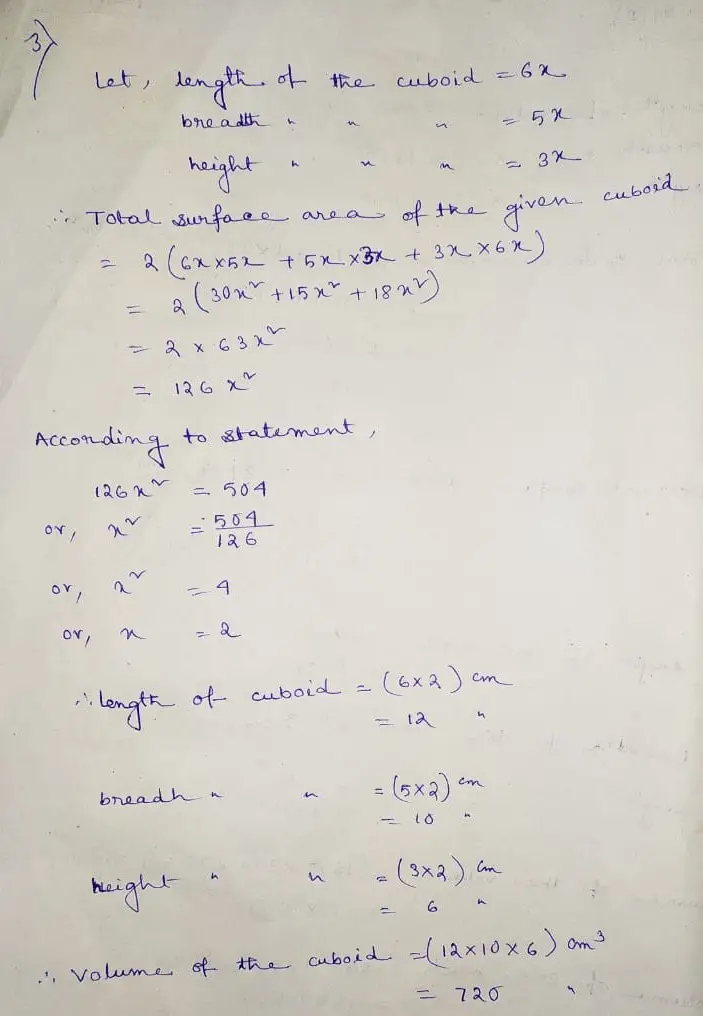 3)
Let, length of the cuboid = 6x
breadth " " " = 5x
height " " " = 3x
∴ Total surface area of the given cuboid
= 2 (6x×5x + 5x×3x + 3x×6x)
= 2 (30x² + 15x² + 18x²)
= 2 × 63x²
= 126 x²
According to statement,
126x² = 504
or, x² = 504/126
or, x² = 4
or, x = 2
∴ length of cuboid = (6×2) cm
= 12 "
breadh " " = (5×2) cm
= 10 "
height " " = (3×2) cm
= 6 "
∴ Volume of the cuboid = (12×10×6) cm³
= 720 "